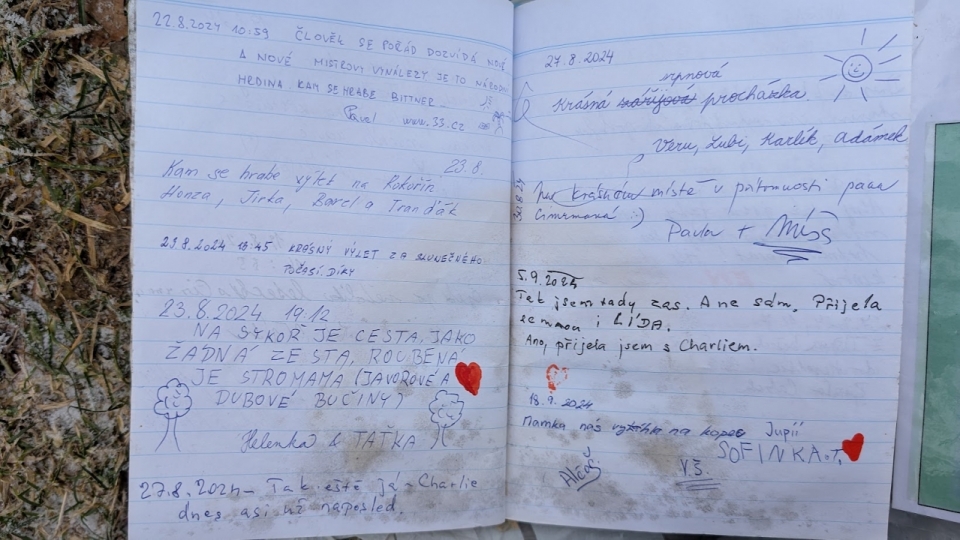 22.8.2024 10:59 ČLOVĚK SE POŘÁD DOZVÍDÁ NOVÉ
A NOVÉ MISTROVY VYNÁLEZY JE TO NÁRODNÍ
HRDINA KAM SE HRABE BITTNER
Pavel www.33.cz
23.8.
Kam se hrabe výlet na Kokořín
Honza, Jirka, Karel a Tranďák
23.8.2024 18:45 KRÁSNÝ VÝLET ZA SLUNEČNÉHO
POČASÍ, DÍKY
23.8.2024 19.12
NA SÝKOŘ JE CESTA, JAKO
ŽADNÁ ZE STA, ROUBENA
JE STROMAMA (JAVOROVÉ A
DUBOVÉ BUČINY)
Helenka & TAŤKA
27.8.2024 - Tak ještě já - Charlie
dnes asi už naposled.
27.8.2024
srpnová
Krásná zářijová procházka.
Veru, Lubi, Karlík, Adámek
místě v přítomnosti pana
Cimrmana :)
Pavla + Míša
5.9.2024
Tak jsem tady zas. A ne sám. Přijela
se mnou i LÍDA.
Ano, přijela jsem s Charliem.
18.9.2024
Mamka nás vytáhla na kopec Jupíí
SOFINKA
VŠ.